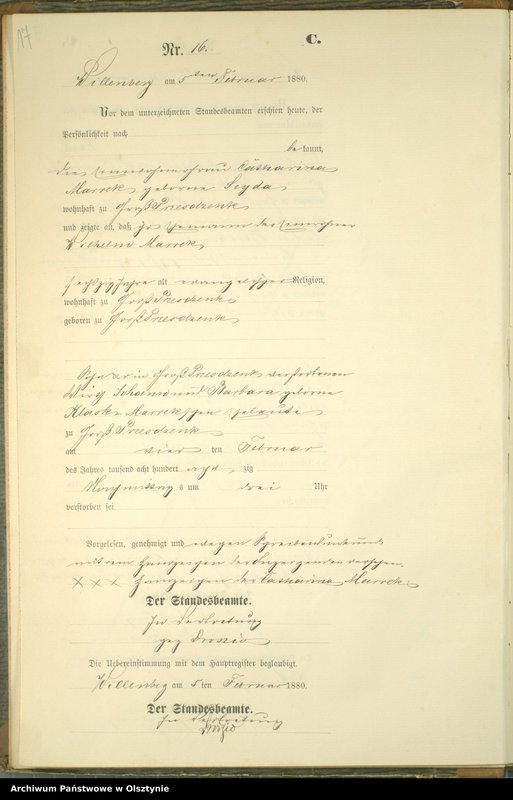 17
C.
Nr. 16.
Willenberg am 5ten Februar 1880.
Vor dem unterzeichneten Standesbeamten erschien heute, der
Persönlichkeit nach
be kannt,
die Einwohnerfrau Catharina
Marrek geborne Seyda
wohnhaft zu Groß Piwodzenk
und zeigte an, daß ihr Ehemann der Einwohner
Wilhelm Marrek
sechszig Jahre alt evangelischer Religion,
wohnhaft zu Groß
geboren zu Groß
Sohn der in Groß verstorbenen
Wirth Johann und Barbara geborne
Marrekschen Eheleute
zu Groß
am vier ten Februar
des Jahres tausend acht hundert acht zig
Nachmittags um drei Uhr
verstorben sei
Vorgelesen, genehmigt und wegen Schreibensunkunde
mit den Handzeichen der versehen.
XXX Handzeichen der Catharina Marrek
Der Standesbeamte.
In Vertretung
gez
Die Uebereinstimmung mit dem Hauptregister beglaubigt.
Willenberg am 5 ten Februar 1880.
Der Standesbeamte.
In Vertretung
Archiwum Państwowe w Olsztynie